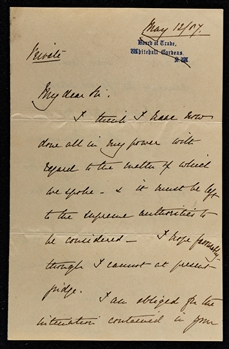 May 12/87.
Board of Trade,
Whitehall Gardens,
S.W.
Private
My dear Sir.
I think I have now
done all in my power with
regard to the matter of which
we spoke - & it must be left
to the supreme authorities to
be considered - I hope favourably,
though I cannot at present
judge.
I am obliged for the
intimation contained in your